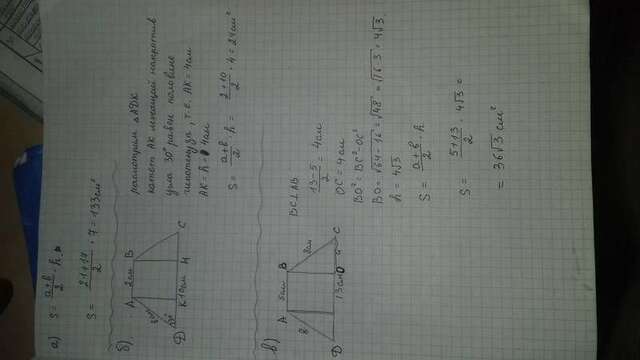 а) S = a+b/2 · h
S = 21+17/2 · 7 = 133см²
б)
A 2см B
8см
30°
D K 10см H C
расмотрим △ADK
катет AK лежащий напротив
угла 30° равен половине
гипотенузы, т.е. AK = 4см
AK = h = 4см
S = a+b/2 · h = 2+10/2 · 4 = 24см²
в)
A 5см B
8 8см
D 13см O 4 C
BC⊥AB
13-5/2 = 4см
OC = 4см
BO² = BC² - OC²
BO = √64-16 = √48 = √16·3 = 4√3
h = 4√3
S = a+b/2 · h
S = 5+13/2 · 4√3 =
= 36√3 см²